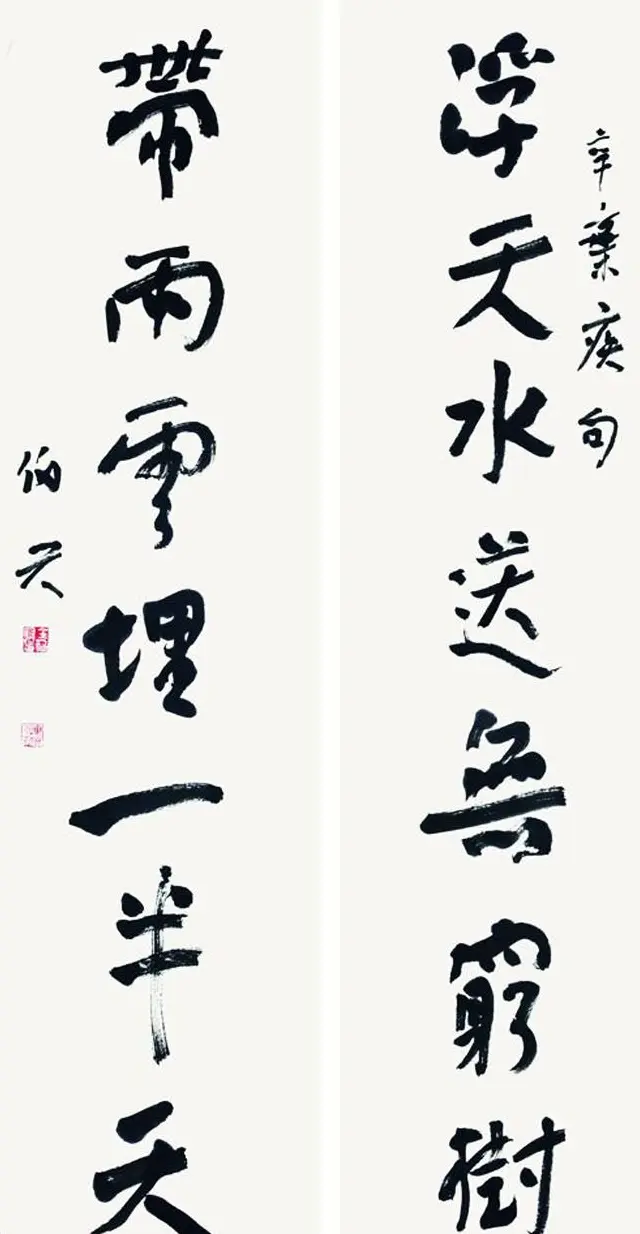 辛棄疾句
浮天水送無窮樹
帶雨雲埋一半天
伯